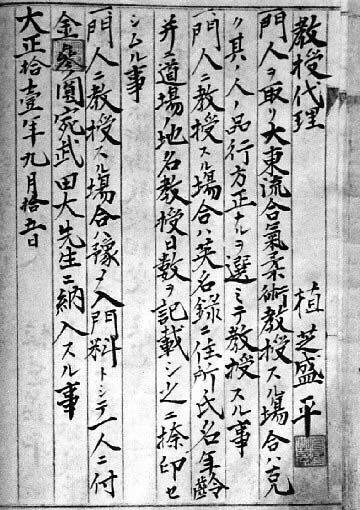 教授代理　植芝盛平
一門人ヲ取リ大東流合氣柔術教授スル塲合ハ克
ク其ノ人ノ品行方正ナルヲ選ミテ教授スル事
一門人ニ教授スル塲合ハ英名錄ニ住所氏名年齡
并ニ道場ノ地名教授日数ヲ記載シ之ニ捺印セ
シムル事
一門人ニ教授スル塲合ハ豫メ入門料トシテ一人ニ付
金参圓宛武田大先生ニ納入スル事
大正拾壹年九月拾五日